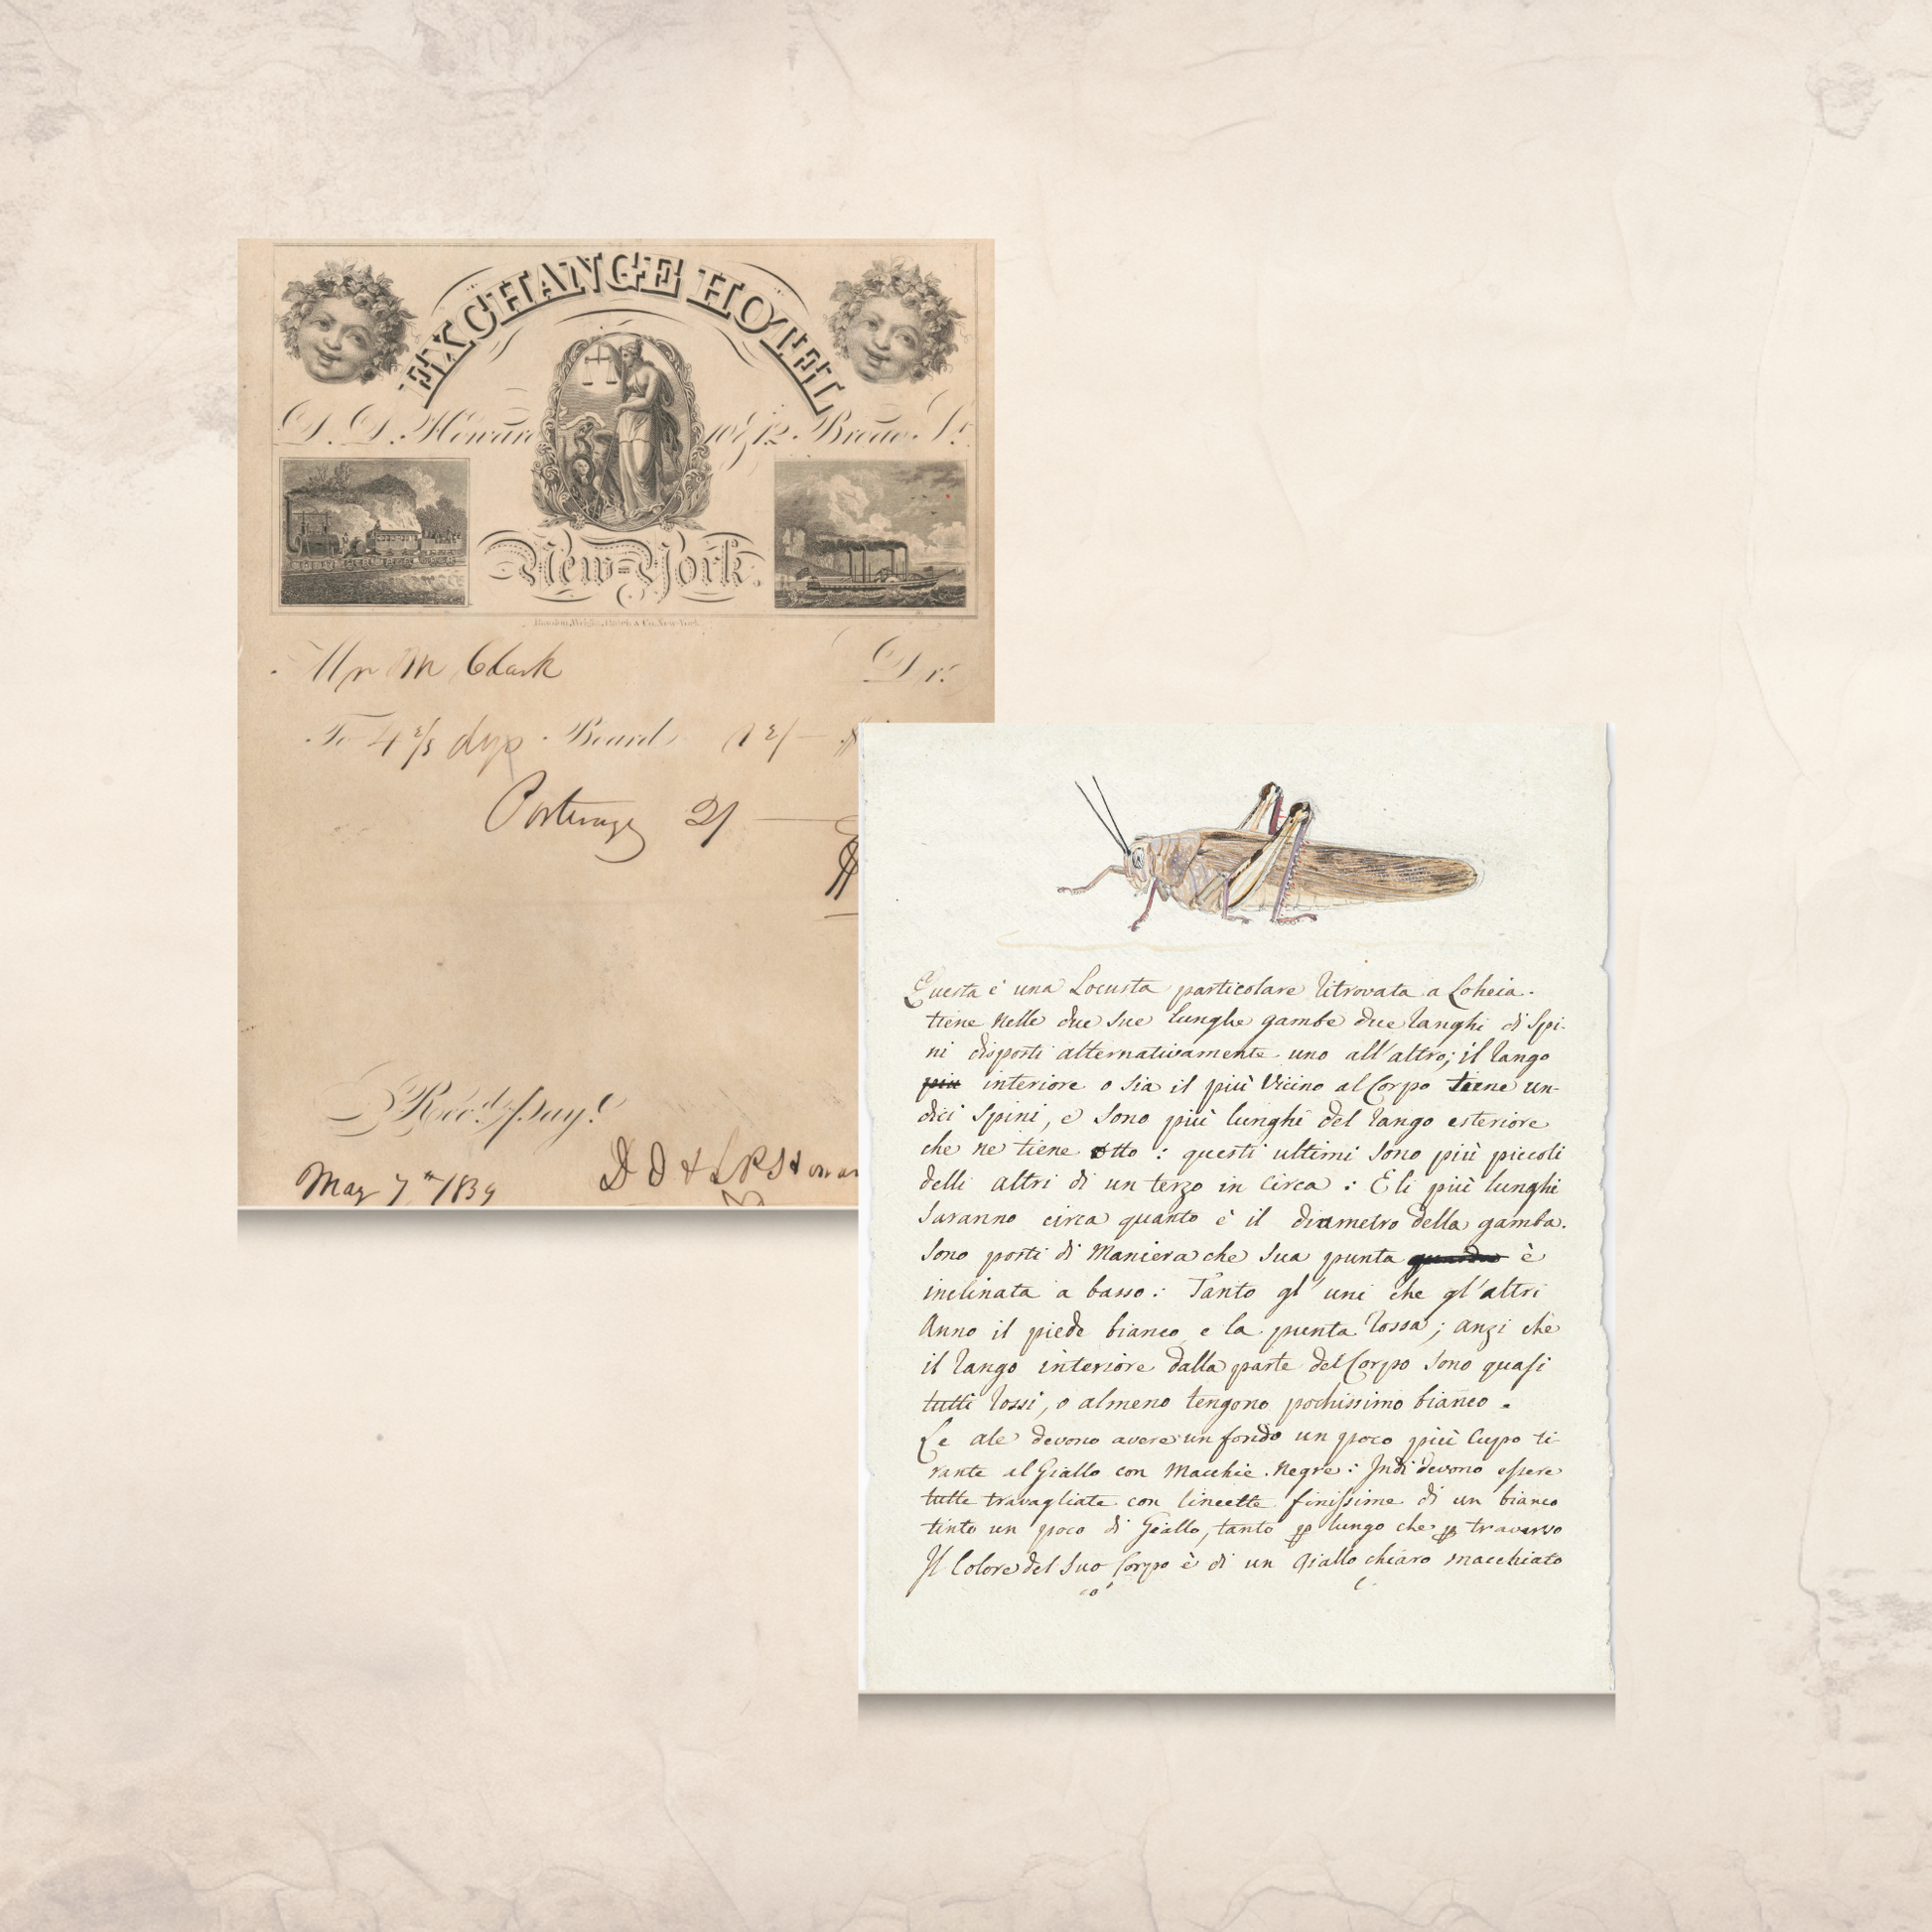 EXCHANGE HOTEL
D. D. Howard 10 & 12. Broad St.
New-York.
Rawdon, Wright, Hatch & Co. New-York.
Mr M Clark Dr.
To 4 2/3 dys Board 12/— $
Porterage 2/ —
$
Rec.d Pay.t
May 7th 1839
D D & Howar
Questa è una Locusta particolare ritrovata a Loheia.
tiene nelle due sue lunghe gambe due ranghi di spi-
ni disposti alternativamente uno all'altro; il rango
più interiore o sia il più vicino al Corpo tiene un-
dici spini, e sono più lunghi del rango esteriore
che ne tiene otto : questi ultimi sono più piccoli
delli altri di un terzo in circa : E li più lunghi
saranno circa quanto è il diametro della gamba.
Sono posti di Maniera che sua punta guarda è
inclinata a basso : Tanto gl'uni che gl'altri
Anno il piede bianco e la punta rossa ; anzi chè
il rango interiore dalla parte del Corpo sono quasi
tutti rossi, o almeno tengono pochissimo bianco .
Le ale devono avere un fondo un poco più Cupo ti-
rante al Giallo con Macchie Negre : Indi devono essere
tutte travagliate con lineette finissime di un bianco
tinto un poco di Giallo, tanto p lungo che p traverso
Il Colore del suo Corpo è di un Giallo chiaro macchiato